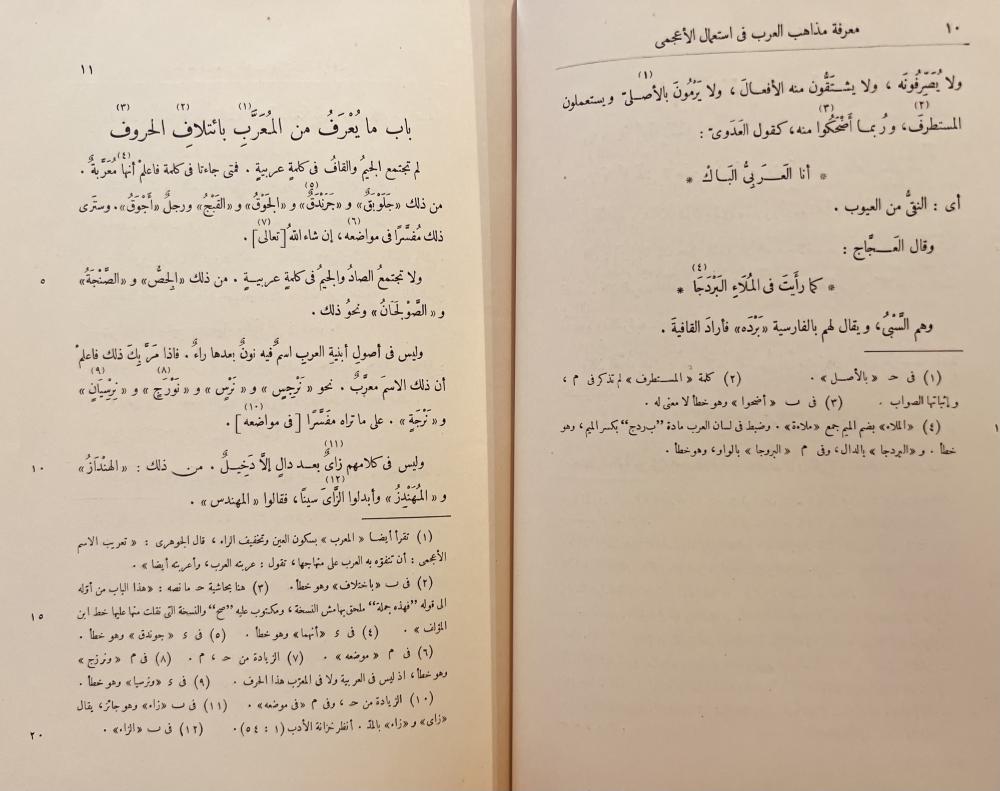 ١٠ معرفة مذاهب العرب فى استعمال الأعجمى
ولا يُصَرِّفُونَه ، ولا يشتَقُّون منه الأفعالَ ، ولا يَرْمُونَ بالأصلىّ (١) ويستعملون
المستطرفَ (٢)، ورُبما أَضْحَكُوا (٣) منه، كقول العَدَوىّ :
* أنا العَرَبِىُّ البَاكْ *
أى : النقىُّ من العيوب .
وقال العَجَّاج :
* كما رأَيتَ فى المُلَاءِ (٤) البَرْدَجَا *
وهم السَّبْىُ، ويقال لهم بالفارسية «بَرْدَه» فأرادَ القافيةَ .
(١) فى حـ «بالأصل» . (٢) كلمة «المستطرف» لم تذكر فى م ،
وإثباتها الصواب . (٣) فى ب «أضحوا» وهو خطأ لا معنى له .
(٤) «الملاء» بضم الميم جمع «ملاءة» . وضبط فى لسان العرب مادة "ب ر د ج" بكسر الميم، وهو
خطأ . و «البردجا» بالدال، وفى م «البروجا» بالواو، وهو خطأ .
١١
باب ما يُعْرَفُ من المُعَرَّبِ (١) بائتلافِ (٢) الحروف (٣)
لم تجتمع الجيمُ والقافُ فى كلمةٍ عربيةٍ . فمتى جاءتا فى كلمة فاعلمْ أنها (٤) مُعَرَّبةٌ .
من ذلك «جَلَوْبَقٌ» و «جَرَنْدَقٌ (٥)» و «الجَوْقُ» و «القَبْجُ» ورجلٌ «أَجْوَقُ». وسترَى
ذلك مُفسَّرًا فى مواضعه (٦)، إن شاء اللهُ [تعالى] (٧).
ولا تجتمعُ الصادُ والجيمُ فى كلمةٍ عربيةٍ . من ذلك «الجِصُّ» و «الصَّنْجَةُ» ٥
و «الصَّوْلَجَانُ» ونحوُ ذلك .
وليس فى أصولِ أبنيةِ العربِ اسمٌ فيه نونٌ بعدها راءٌ . فاذا مَرَّ بكَ ذلك فاعلمْ
أن ذلك الاسمَ معرَّبٌ . نحو «نَرْجِسٍ» و «نَرْسٍ» و «نَوْرَجٍ (٨)» و «نِرْسِيَانٍ (٩)»
و «نَرْجَةٍ» . على ما تراه مفَسَّرًا [فى مواضعه (١٠)] .
وليس فى كلامهم زاىٌ (١١) بعد دالٍ إلَّا دَخِيلٌ . من ذلك : «الهِنْدَازُ» ١٠
و «المُهَنْدِزُ» وأبدلوا الزَّاىَ (١٢) سينًا، فقالوا «المهندس» .
(١) تقرأ أيضا «المعرب» بسكون العين وتخفيف الراء ، قال الجوهرى : «تعريب الاسم
الأعجمى : أن تتفوّه به العرب على منهاجها، تقول : عربته العرب، وأعربته أيضا» .
(٢) فى ب «باختلاف» وهو خطأ. (٣) هنا بحاشية حـ ما نصه : «هذا الباب من أوّله
الى قوله "فهذه جملة" ملحق بهامش النسخة ، ومكتوب عليه "صح" والنسخة التى نقلت منها عليها خط ابن ١٥
المؤلف» . (٤) فى ء «أنهما» وهو خطأ . (٥) فى ء «جوندق» وهو خطأ .
(٦) فى م «موضعه» . (٧) الزيادة من حـ ، م . (٨) فى م «ونرزج»
وهو خطأ ، اذ ليس فى العربية ولا فى المعرّب هذا الحرف . (٩) فى ء «ونرسيا» وهو خطأ .
(١٠) الزيادة من حـ ، وفى م «فى موضعه» . (١١) فى ب «زاء» وهو جائز، يقال
«زاى» و «زاء» بالمدّ . أنظر خزانة الأدب (١ : ٥٤) . (١٢) فى ب «الزاء» . ٢٠